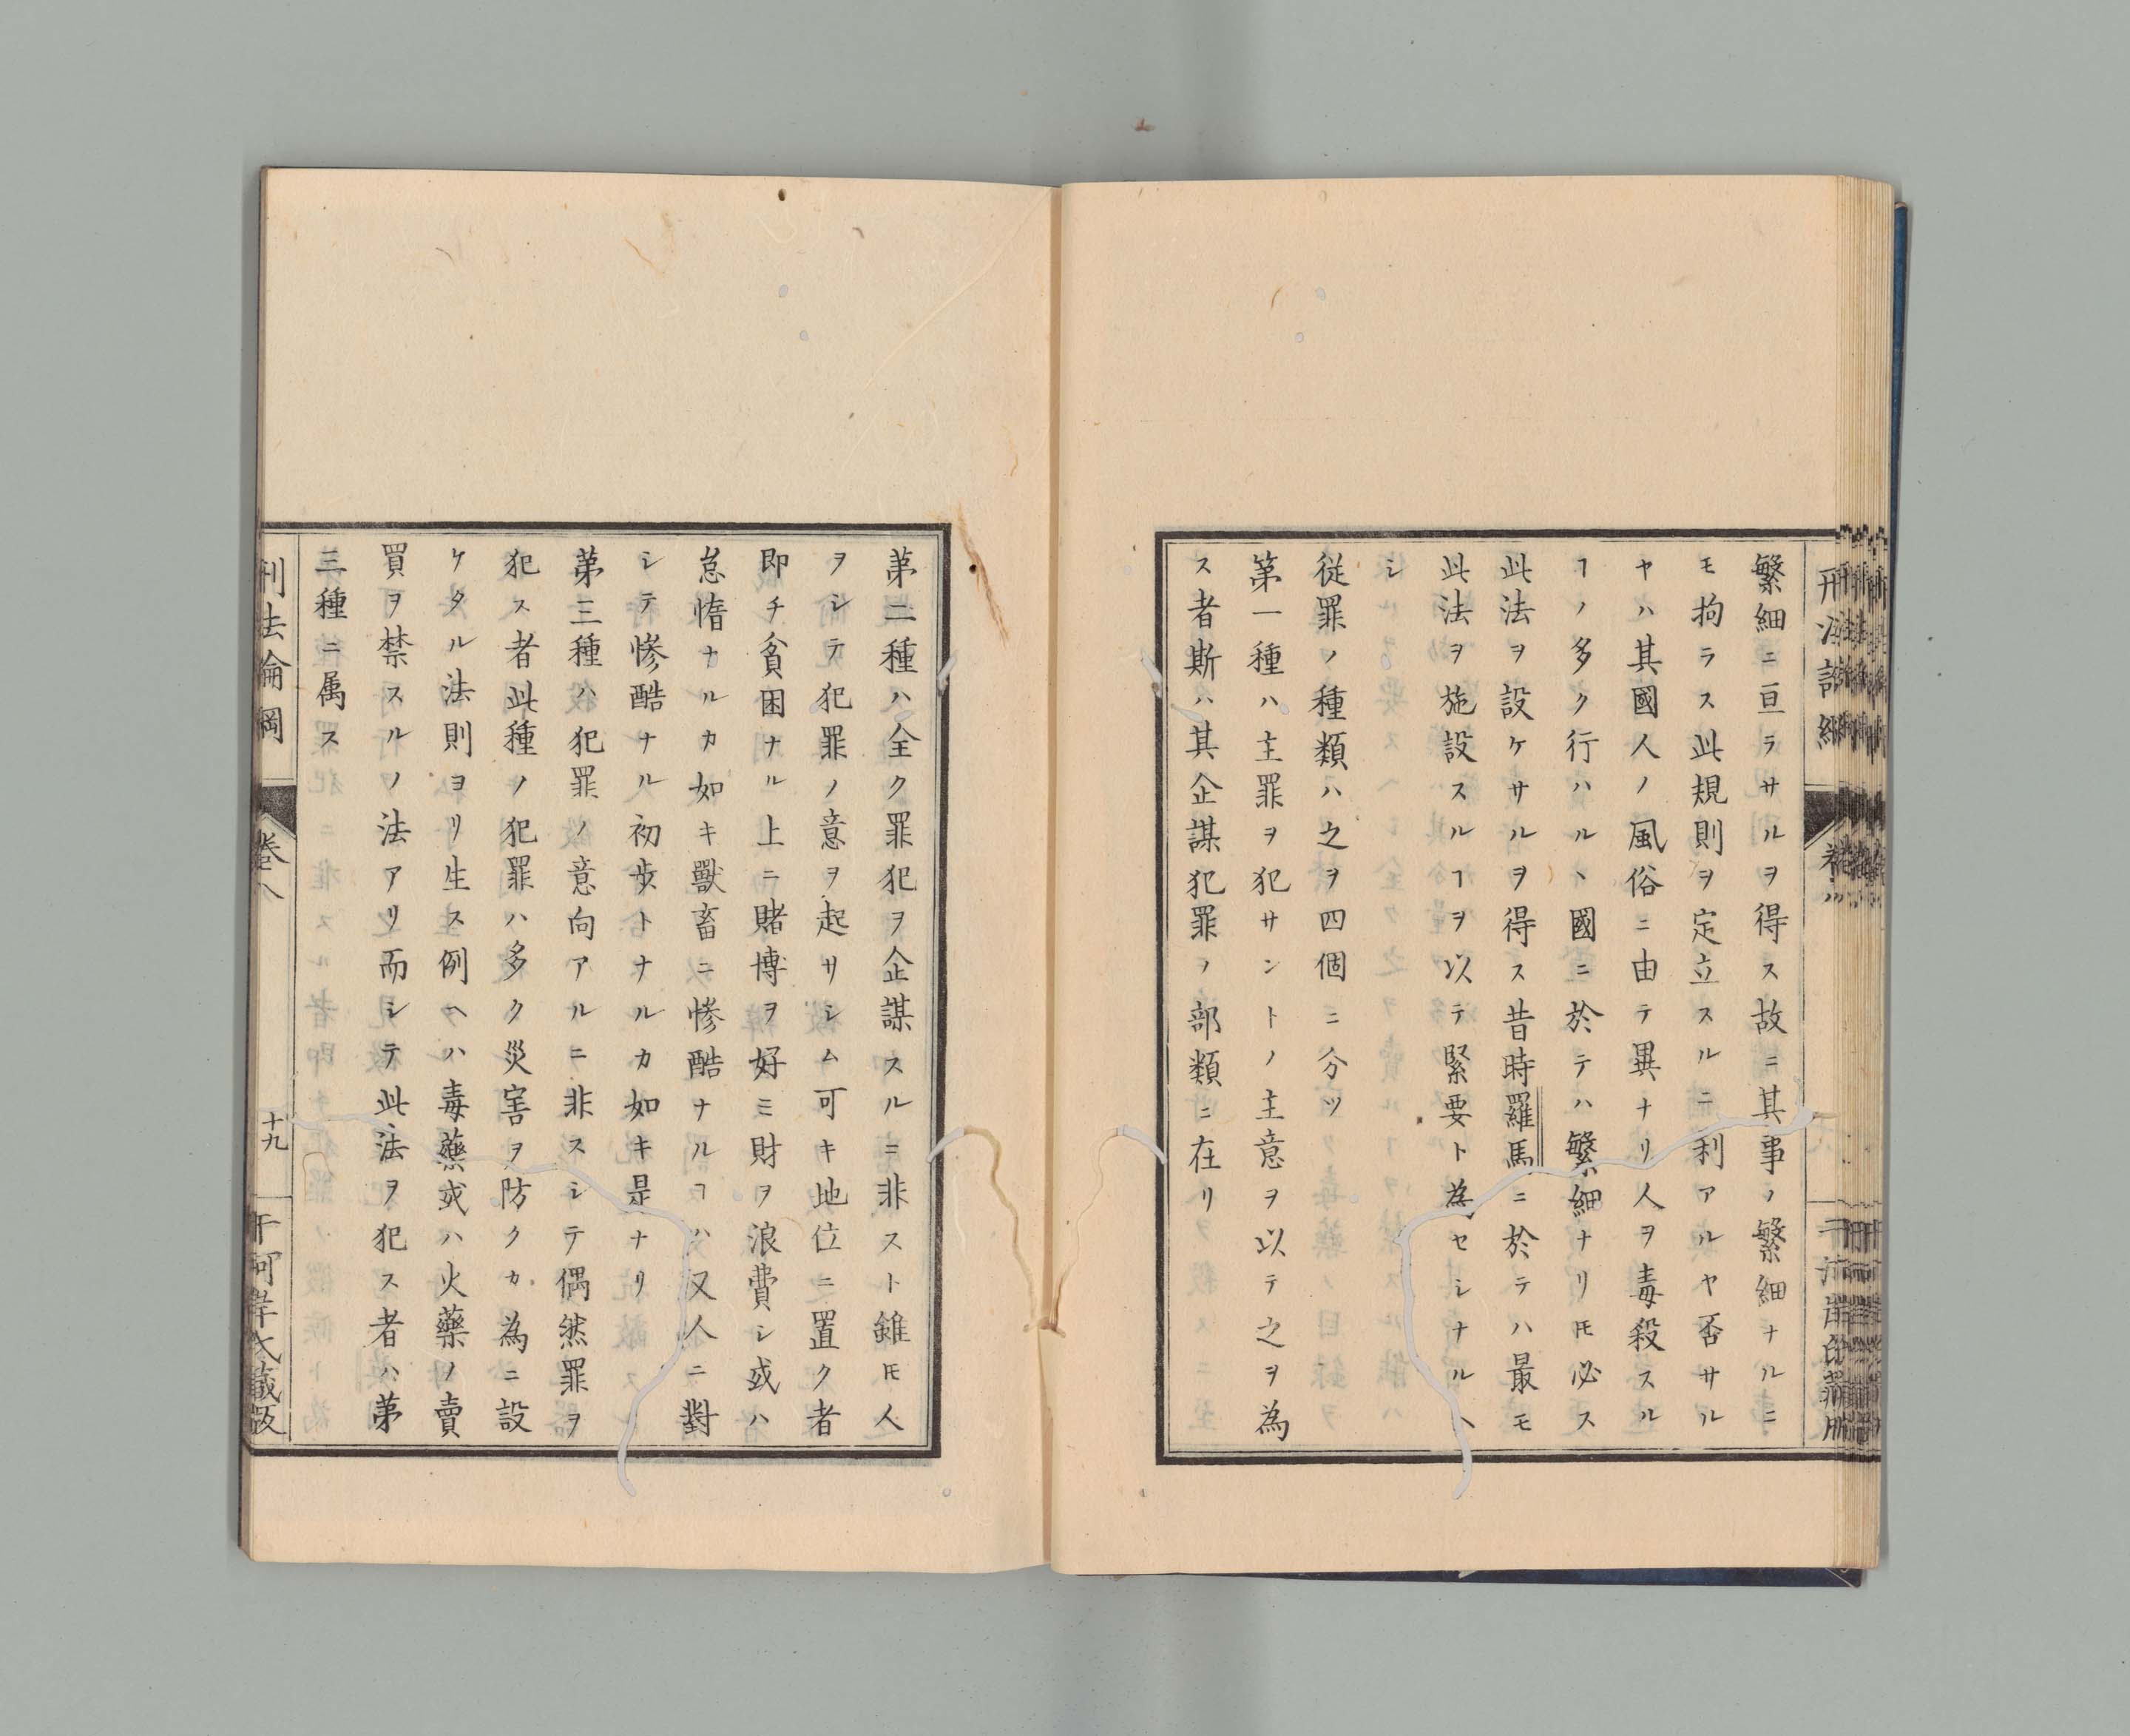 繁細ニ亘ラサルヲ得ス故ニ其事ノ繁細ナルニ
モ拘ラス此規則ヲ定立スルニ利アルヤ否サル
ヤハ其國人ノ風俗ニ由テ異ナリ人ヲ毒殺スル
ヿノ多ク行ハルヽ國ニ於テハ繁細ナリ𪜈必ス
此法ヲ設ケサルヲ得ス昔時羅馬ニ於テハ最モ
此法ヲ施設スルヿヲ以テ緊要ト為セシナルヘ
シ
従罪ノ種類ハ之ヲ四個ニ分ツ
第一種ハ主罪ヲ犯サントノ主意ヲ以テ之ヲ為
ス者斯ハ其企謀犯罪ノ部類ニ在リ
第二種ハ全ク罪犯ヲ企謀スルニ非スト雖𪜈人
ヲシテ犯罪ノ意ヲ起サシム可キ地位ニ置ク者
即チ貧困ナル上ニ賭博ヲ好ミ財ヲ浪費シ或ハ
怠惰ナルカ如キ獸畜ニ慘酷ナルヿハ又人ニ對
シテ慘酷ナル初歩トナルカ如キ是ナリ
第三種ハ犯罪ノ意向アルニ非スシテ偶然罪ヲ
犯ス者此種ノ犯罪ハ多ク災害ヲ防クカ為ニ設
ケタル法則ヨリ生ス例ヘハ毒藥或ハ火藥ノ賣
買ヲ禁スルノ法アリ而シテ此法ヲ犯ス者ハ第
三種ニ属ス
刑法論綱
卷八
十九
干河岸氏蔵版